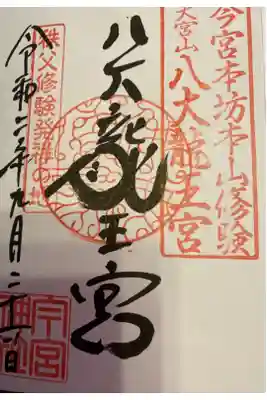 今宮本坊本山修験
大宮山 八大龍王宮
八大龍王宮
秩父修験発祥の地
令和二年九月二十日